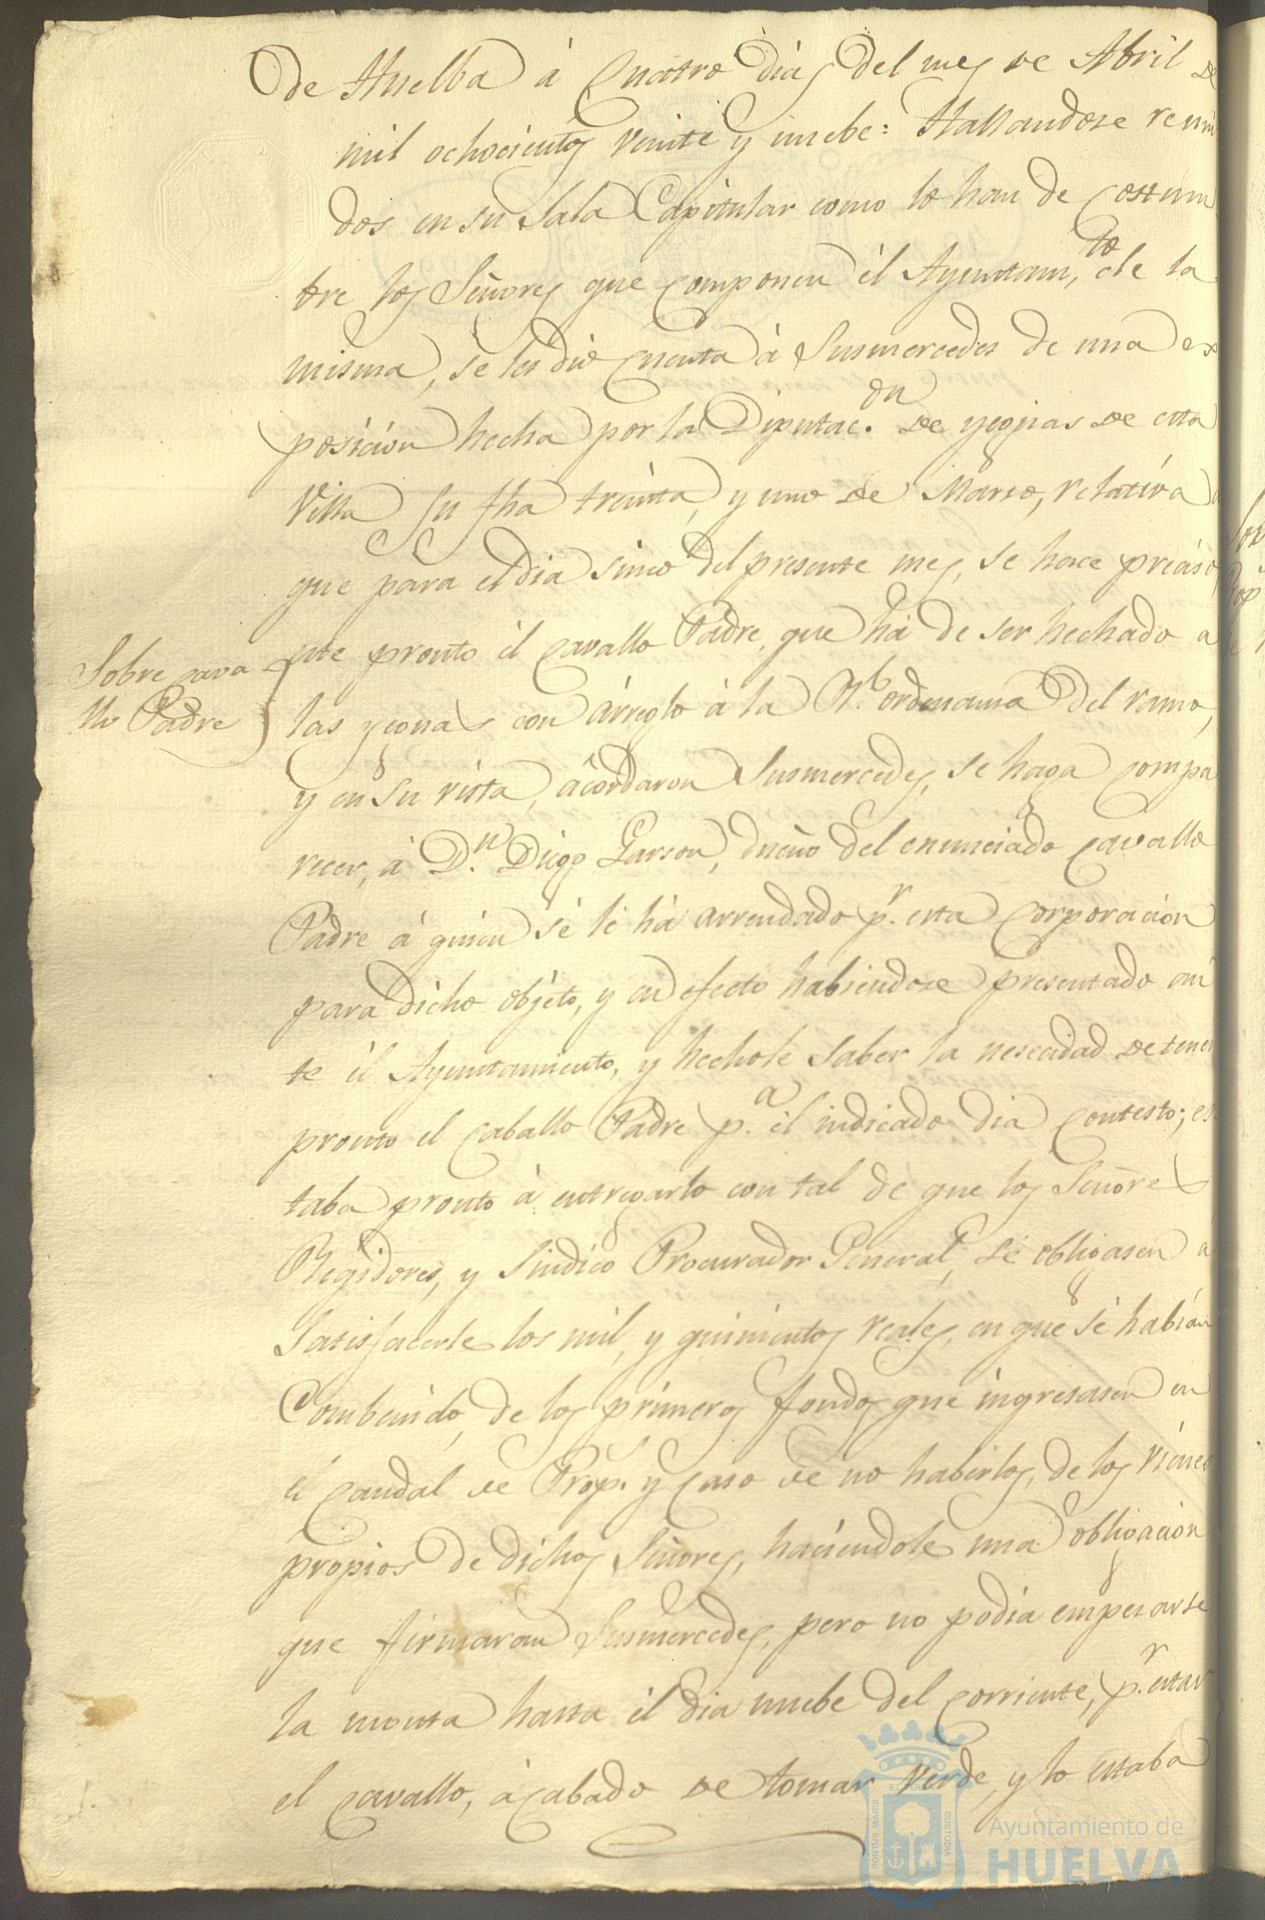 de Huelba à Quatro dias del mes de Abril de
mil ochocientos veinte y nuebe: Hallandose reuni
dos en su Sala Capitular como lo han de costum
bre los Señores que componen él Ayuntam.to de la
misma, se les dió cuenta à Susmercedes de una ex
posicion hecha por la Diputac.on de yeguas de esta
Villa su fha treinta, y uno de Marso, relativa a
que para el dia sinco del presente mes, se hace preciso
Sobre cava
llo Padre
este pronto él cavallo Padre, que há de ser hechado a
las yeguas con árreglo à la R.l ordenansa del ramo,
y en su vista, acordaron Susmercedes, se haga compa
recer, à D.n Diego Garson, dueño del enunciado cavallo
Padre á quien sé lé há arrendado p.r esta corporacion
para dicho objeto, y en efecto habiendose presentado an
te él Ayuntamiento, y hechole saber la nesecidad de tener
pronto el caballo Padre p.a él indicado dia contesto; es
taba pronto à entregarlo con tal de que los Señores
Regidores, y Sindico Procurador General, sé obligasen a
Satisfacerle los mil, y quinientos reales, en que sé habian
Combenido, de los primeros fondos que ingresasen en
él caudal de Prop.s y caso de no haberlos, de los vienes
propios de dichos Señores, haciendole una obligacion
que firmaran Susmercedes, pero no podia empesarse
la monta hasta él dia nuebe del corriente, p.r estar
el cavallo, àcabado de tomar verde, y lo estaba
Ayuntamiento de
HUELVA